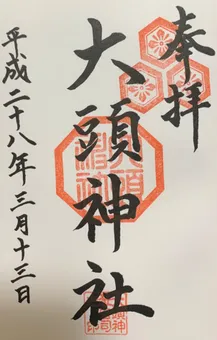 奉拝
大頭神社
平成二十八年三月十三日